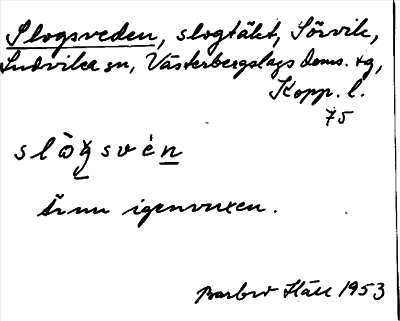 Slogsveden, slogtäkt, Sörvik,
Ludvika sn, Västerbergslags doms. tg,
Kopp. l.
75
slò̠gsvèn̠
Är nu igenvuxen.
Barbro Häll 1953